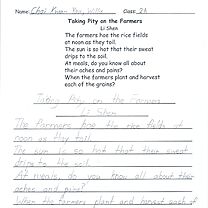 Name: Choi Kwan Yau, Willy Class: 2A
Taking Pity on the Farmers
Li Shen
The farmers hoe the rice fields
at noon as they toil.
The sun is so hot that their sweat
drips to the soil.
At meals, do you know all about
their aches and pains?
When the farmers plant and harvest
each of the grains?
Taking Pity on the Farmers
Li Shen
The farmers hoe the rice fields at
noon as they toil.
The sun is so hot that their sweat
drips to the soil.
At meals, do you know all about their
aches and pains?
When the farmers plant and harvest each of